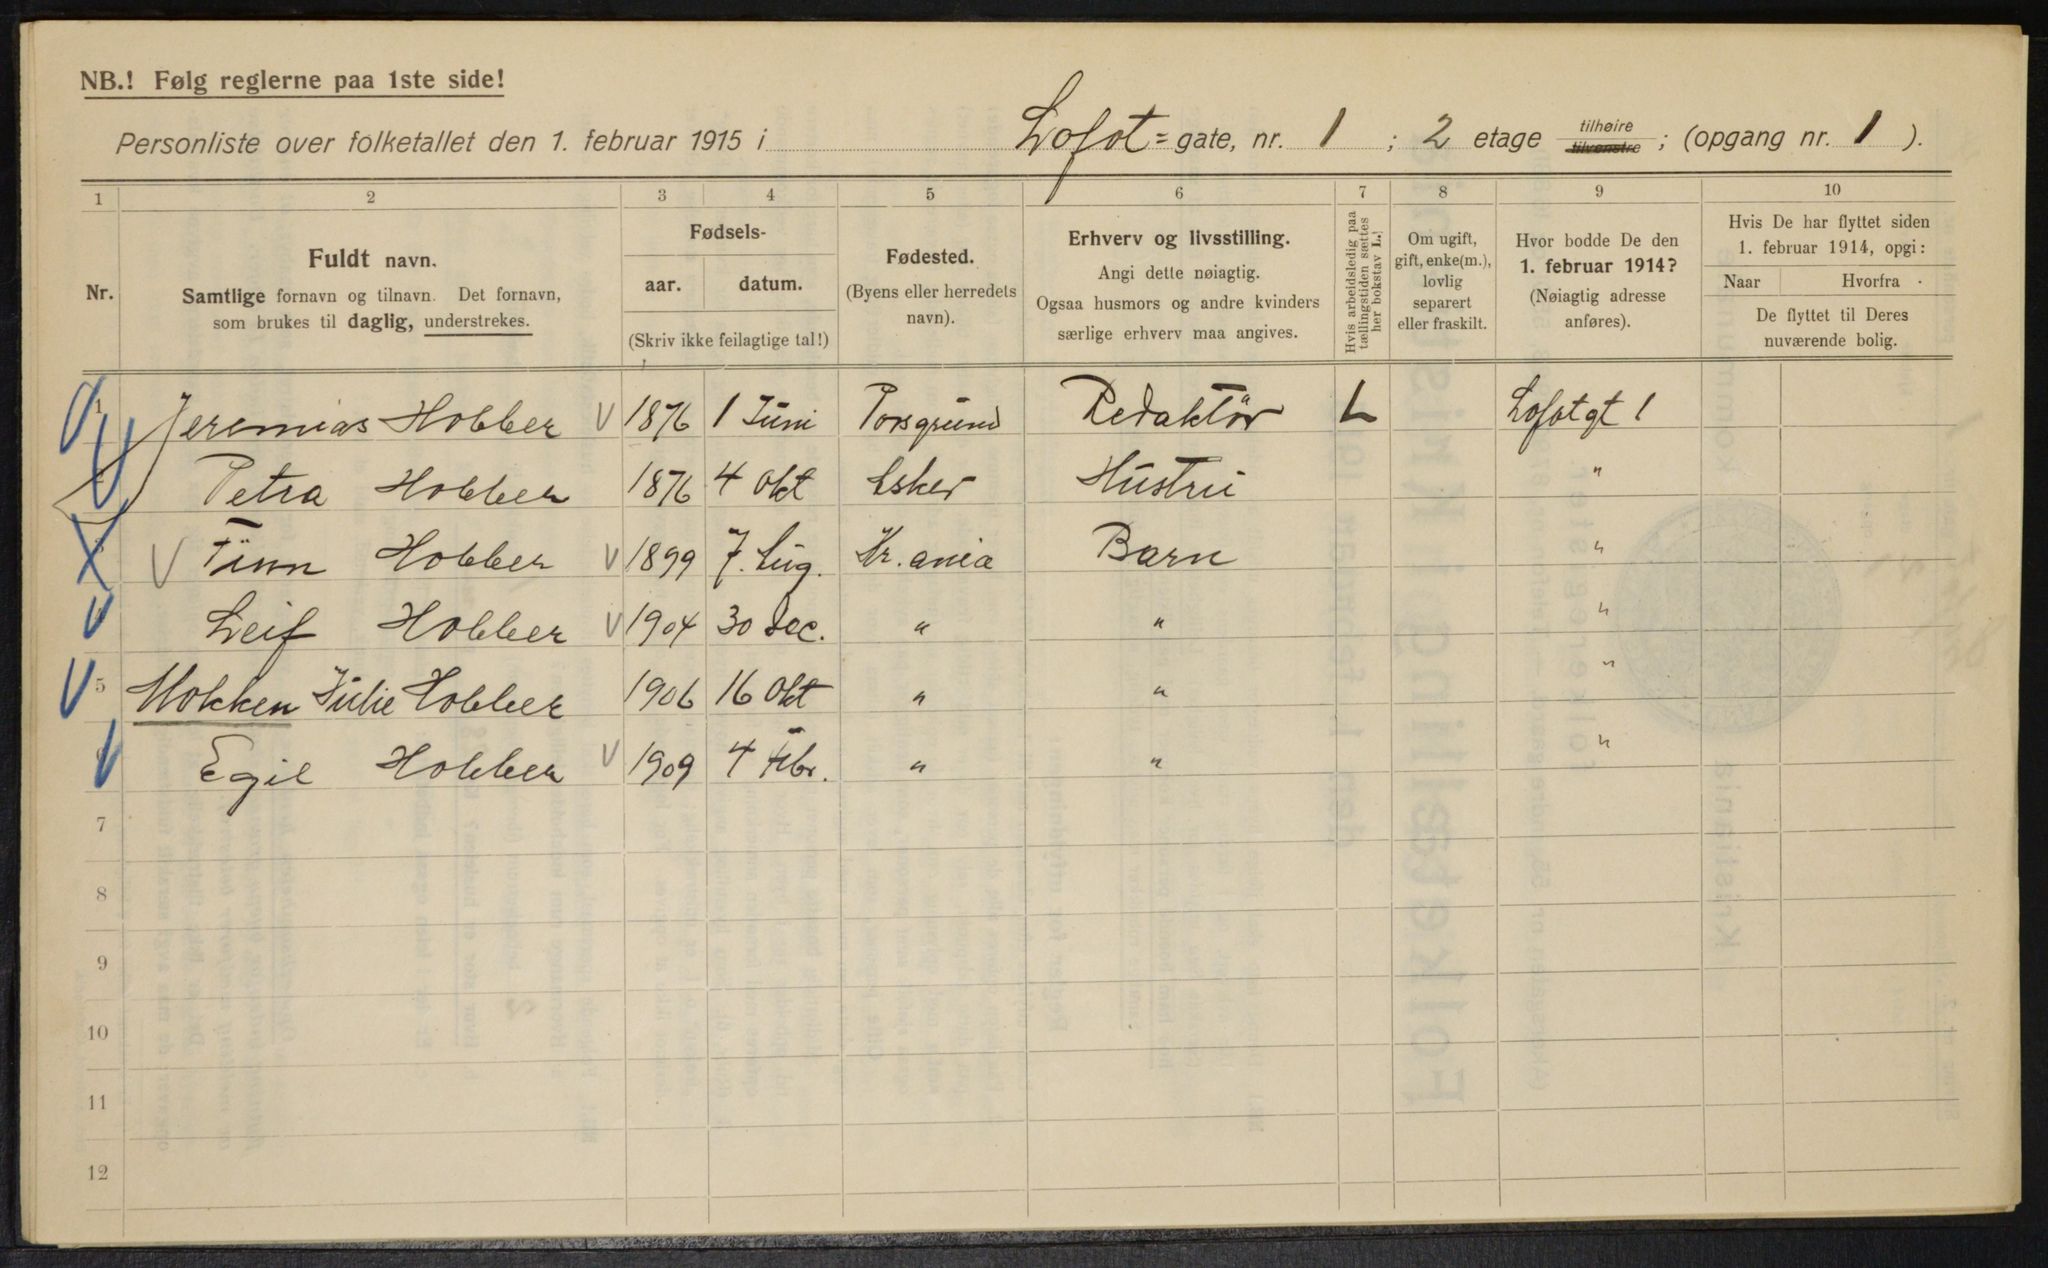 NB.! Følg reglerne paa 1ste side!
Personliste over folketallet den 1. februar 1915 i Lofot=gate, nr. 1 ; 2 etage tilhøire tilvenstre ; (opgang nr. 1 ).
1 2 3 4 5 6 7 8 9 10
Nr.
Fuldt navn.
Samtlige fornavn og tilnavn. Det fornavn,
som brukes til daglig, understrekes.
Fødsels-
aar. datum.
(Skriv ikke feilagtige tal!)
Fødested.
(Byens eller herredets
navn).
Erhverv og livsstilling.
Angi dette nøiagtig.
Ogsaa husmors og andre kvinders
særlige erhverv maa angives.
Hvis arbeidsledig paa
tællingstiden sættes
her bokstav L.!
Om ugift,
gift, enke(m.),
lovlig
separert
eller fraskilt.
Hvor bodde De den
1. februar 1914?
(Nøiagtig adresse
anføres).
Hvis De har flyttet siden
1. februar 1914, opgi:
Naar Hvorfra
De flyttet til Deres
nuværende bolig.
1 Jeremias Hobber V 1876 1 Juni Porsgrund Redaktör L Lofotgt 1
Petra Hobber 1876 4 Okt Asker Hustru "
V Finn Hobber V 1899 7. Aug. Kr.ania Barn "
Leif Hobber V 1904 30 Dec. " " "
5 Mokken Julie Hobber 1906 16 Okt " " "
Egil Hobber V 1909 4 Febr. " " "
7
8
9
10
11
12